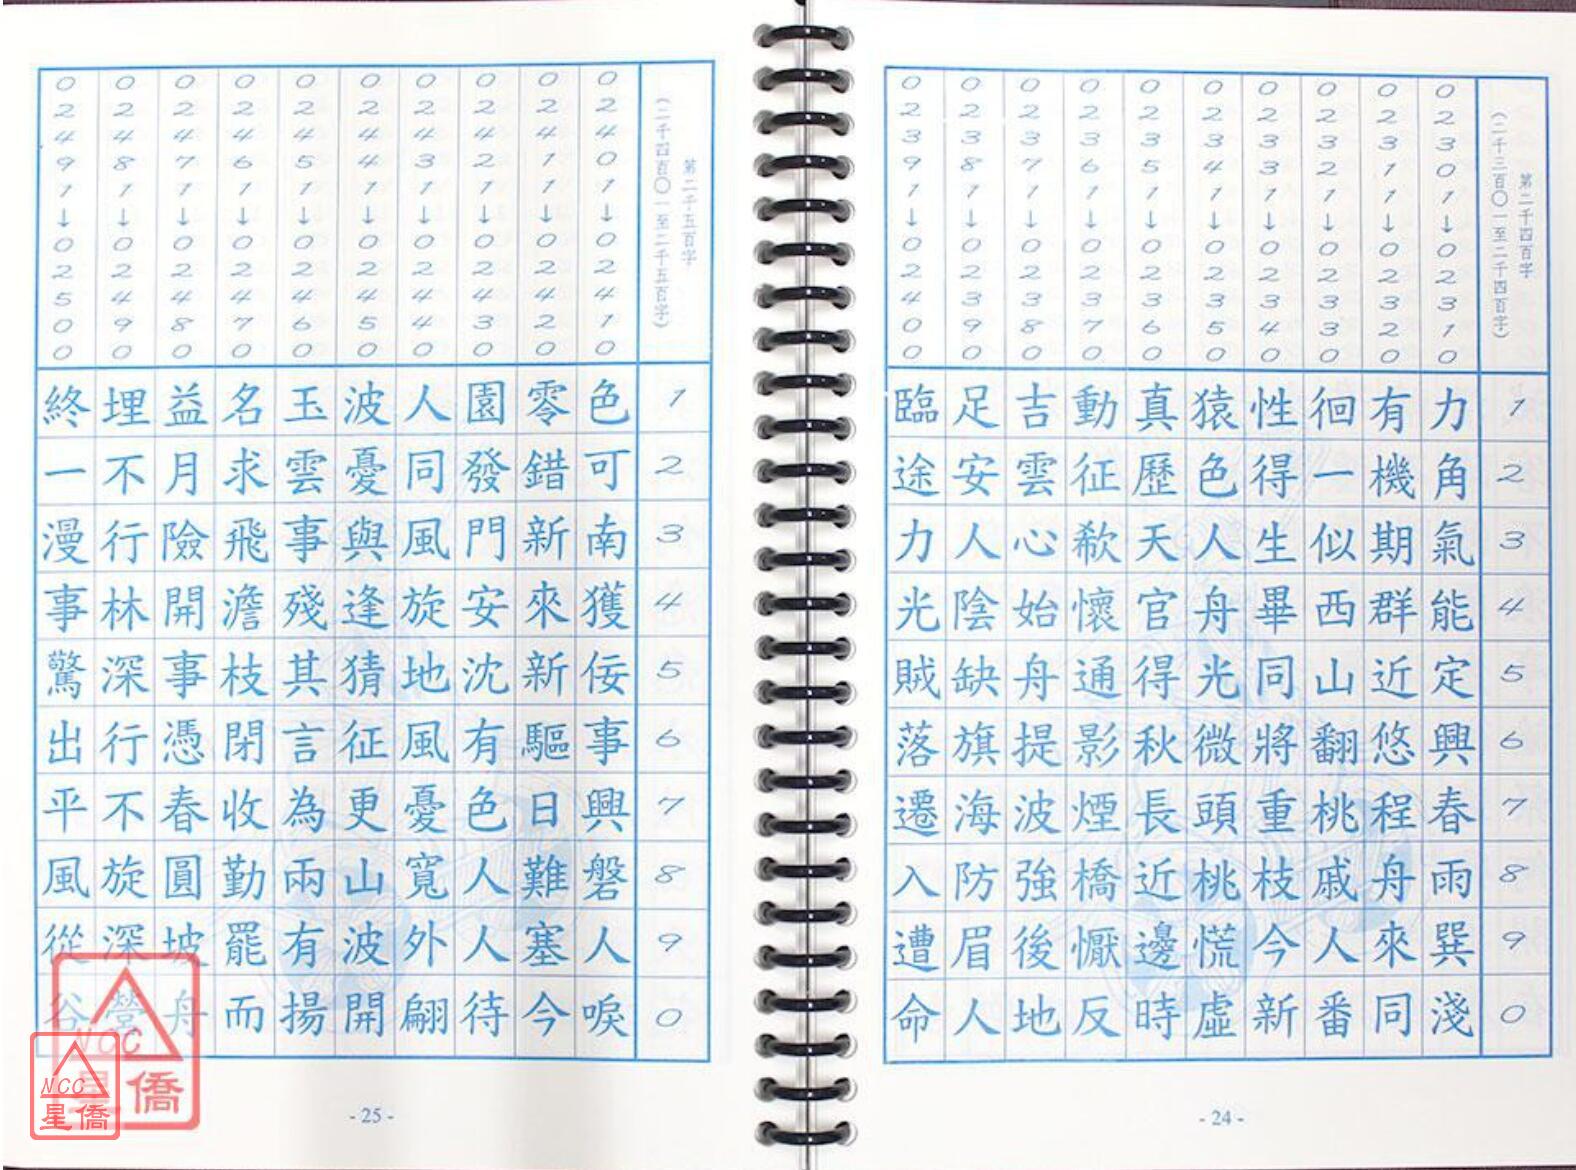 第二千四百字
(二千三百〇一至二千四百字)
1234567890
02301→02310
力角氣能定興春雨巽淺
02311→02320
有機期群近悠程舟來同
02321→02330
徊一似西山翻桃戚人番
02331→02340
性得生畢同將重枝今新
02341→02350
猿色人舟光微頭桃慌虛
02351→02360
真歷天官得秋長近邊時
02361→02370
動征欷懷通影煙橋懨反
02371→02380
吉雲心始舟提波強後地
02381→02390
足安人陰缺旗海防眉人
02391→02400
臨途力光賊落遷入遭命
- 24 -
第二千五百字
(二千四百〇一至二千五百字)
1234567890
02401→02410
色可南獲佞事興磐人唳
02411→02420
零錯新來新驅日難塞今
02421→02430
園發門安沈有色人人待
02431→02440
人同風旋地風憂寬外翩
02441→02450
波憂與逢猜征更山波開
02451→02460
玉雲事殘其言為兩有揚
02461→02470
名求飛澹枝閉收勤罷而
02471→02480
益月險開事憑春圓坡舟
02481→02490
埋不行林深行不旋深營
02491→02500
終一漫事驚出平風從谷
- 25 -
NCC
星僑
NCC
星僑